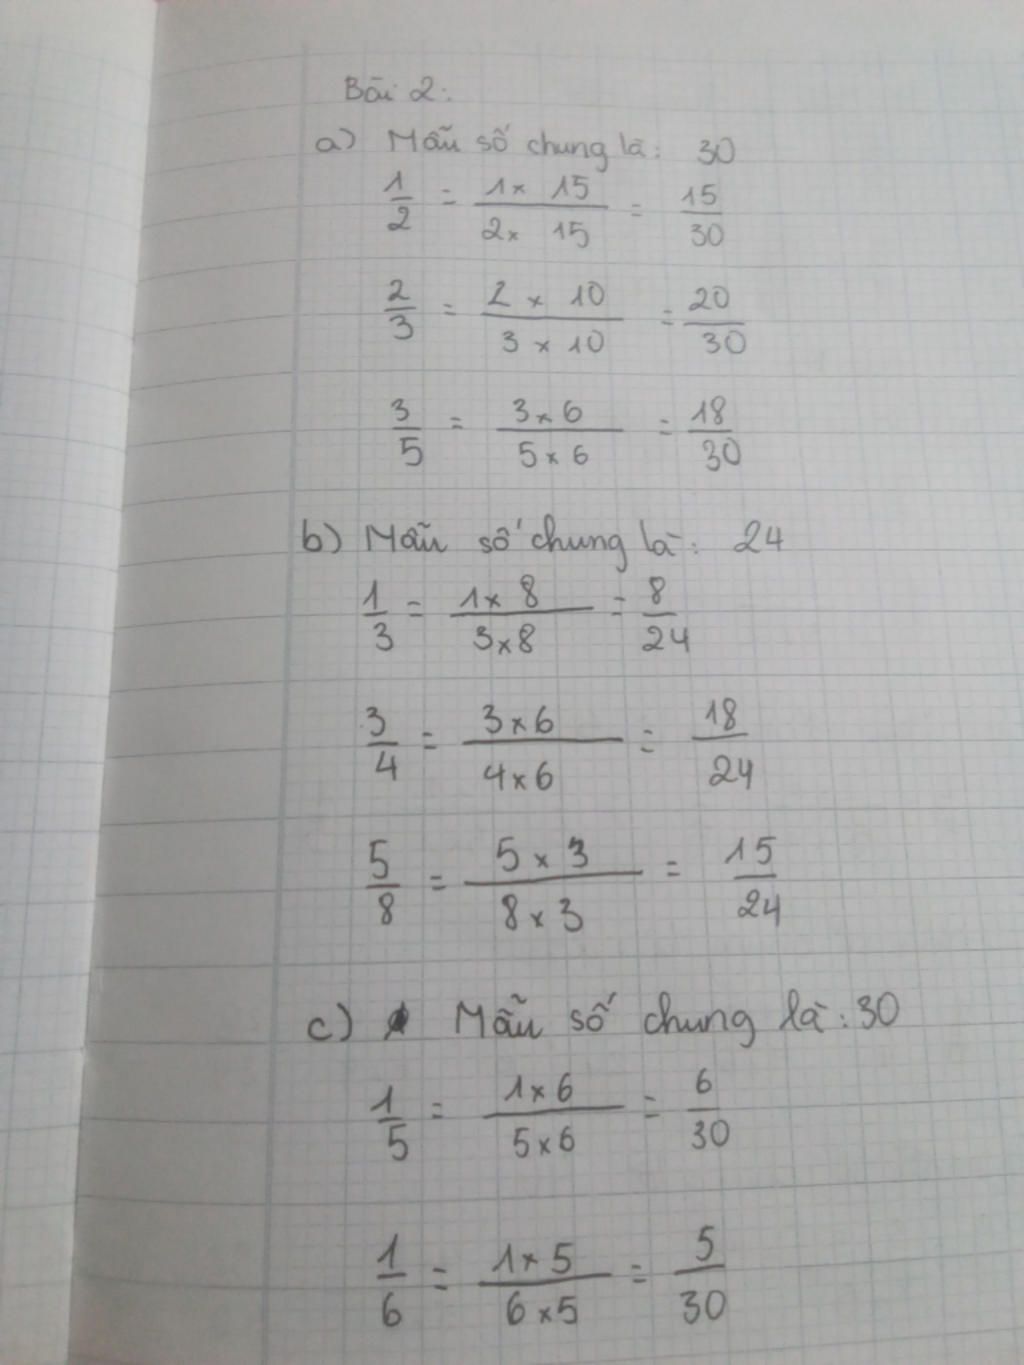 Bài 2:
a) Mẫu số chung là: 30
1/2 = 1 x 15 / 2 x 15 = 15/30
2/3 = 2 x 10 / 3 x 10 = 20/30
3/5 = 3 x 6 / 5 x 6 = 18/30
b) Mẫu số chung là: 24
1/3 = 1 x 8 / 3 x 8 = 8/24
3/4 = 3 x 6 / 4 x 6 = 18/24
5/8 = 5 x 3 / 8 x 3 = 15/24
c) Mẫu số chung là: 30
1/5 = 1 x 6 / 5 x 6 = 6/30
1/6 = 1 x 5 / 6 x 5 = 5/30